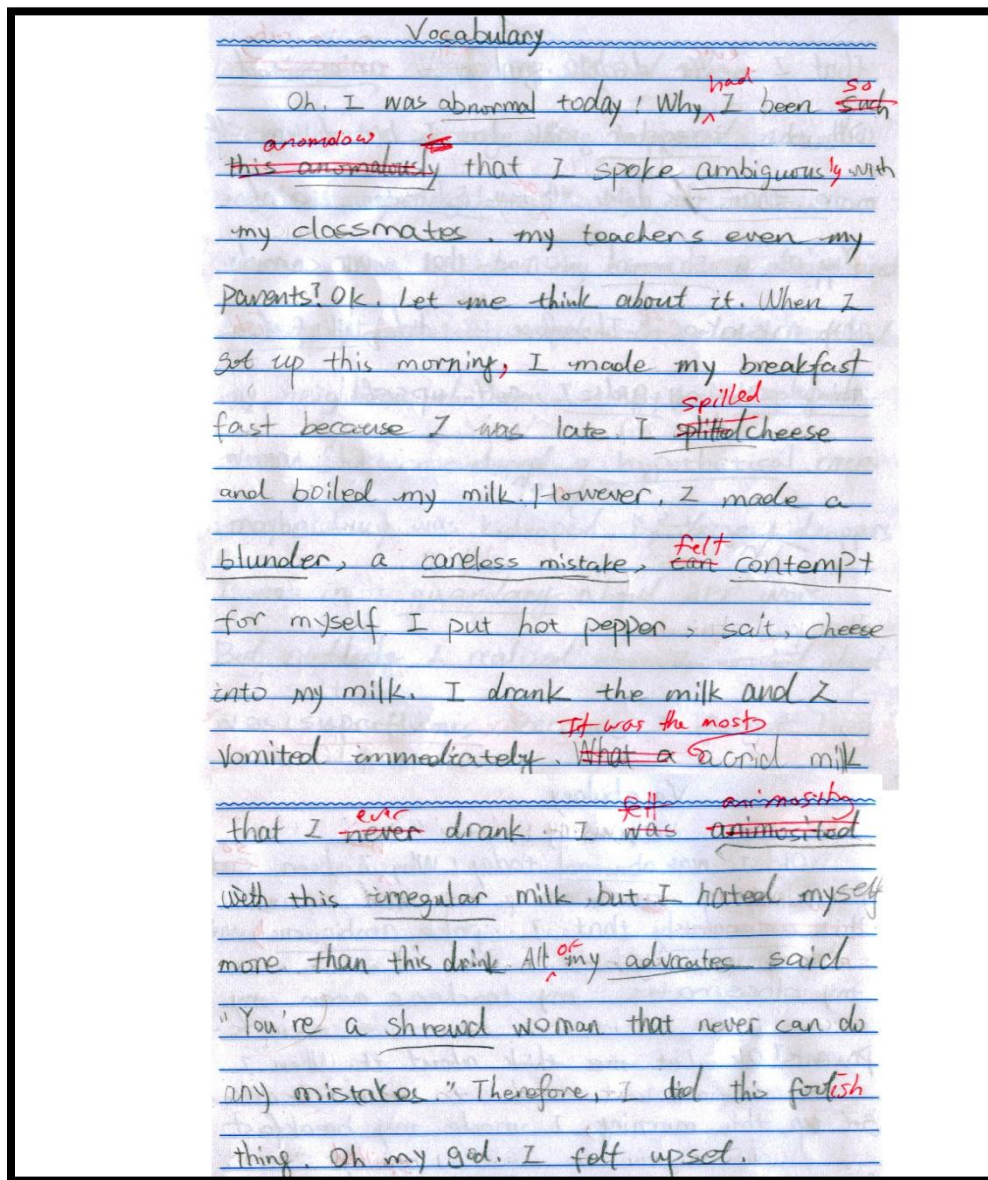 Vocabulary
had so
Oh. I was abnormal today! Why I been such
anomalow
this anomalously that I spoke ambiguously with
my classmates, my teachers even my
parents? Ok. Let me think about it. When I
got up this morning, I made my breakfast
spilled
fast because I was late. I cheese
and boiled my milk. However, I made a
felt
blunder, a careless mistake, contempt
for myself I put hot pepper, salt, cheese
into my milk. I drank the milk and I
It was the most
vomited immediately. What a acrid milk
ever felt animosity
that I never drank. I was animosited
with this irregular milk, but I hated myself
of
more than this drink. All my advocates said
"You're a shrewd woman that never can do
any mistakes." Therefore, I did this foolish
thing. Oh my god. I felt upset.